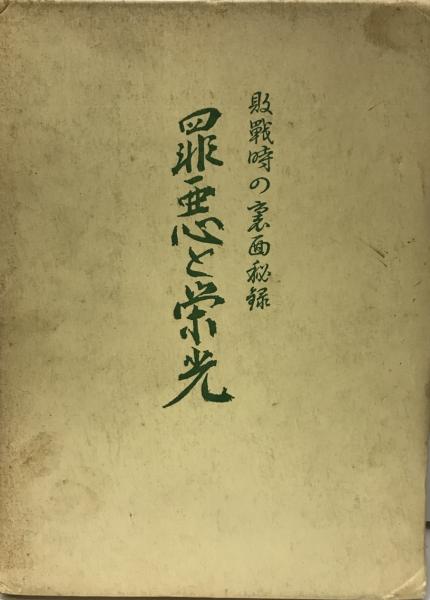 敗戰時の裏面秘録
罪悪と栄光